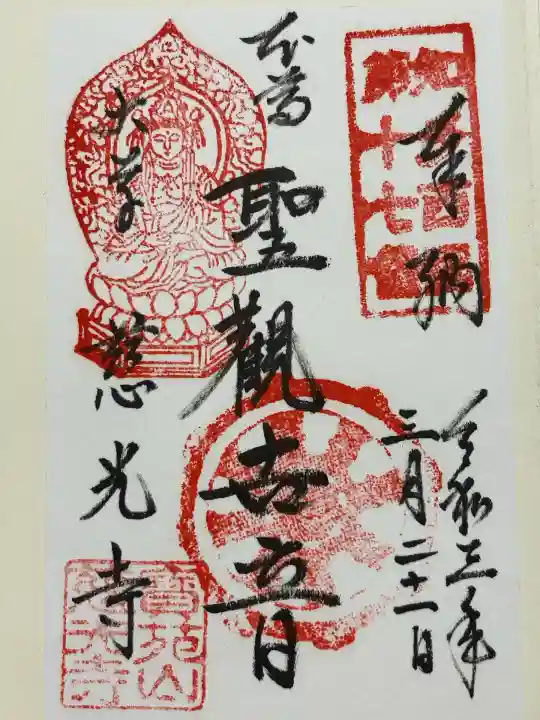 奉納
令和三年
三月二十一日
本尊
聖觀世音
大草
慈光寺
寶苑山
慈光寺